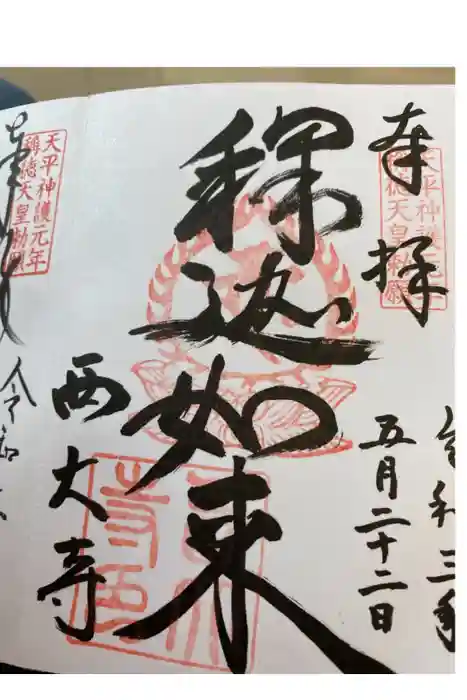 奉拝
天平神護元年
称徳天皇勅願
令和三年
五月二十二日
釈迦如来
西大寺
天平神護元年
稱徳天皇勅願
令和